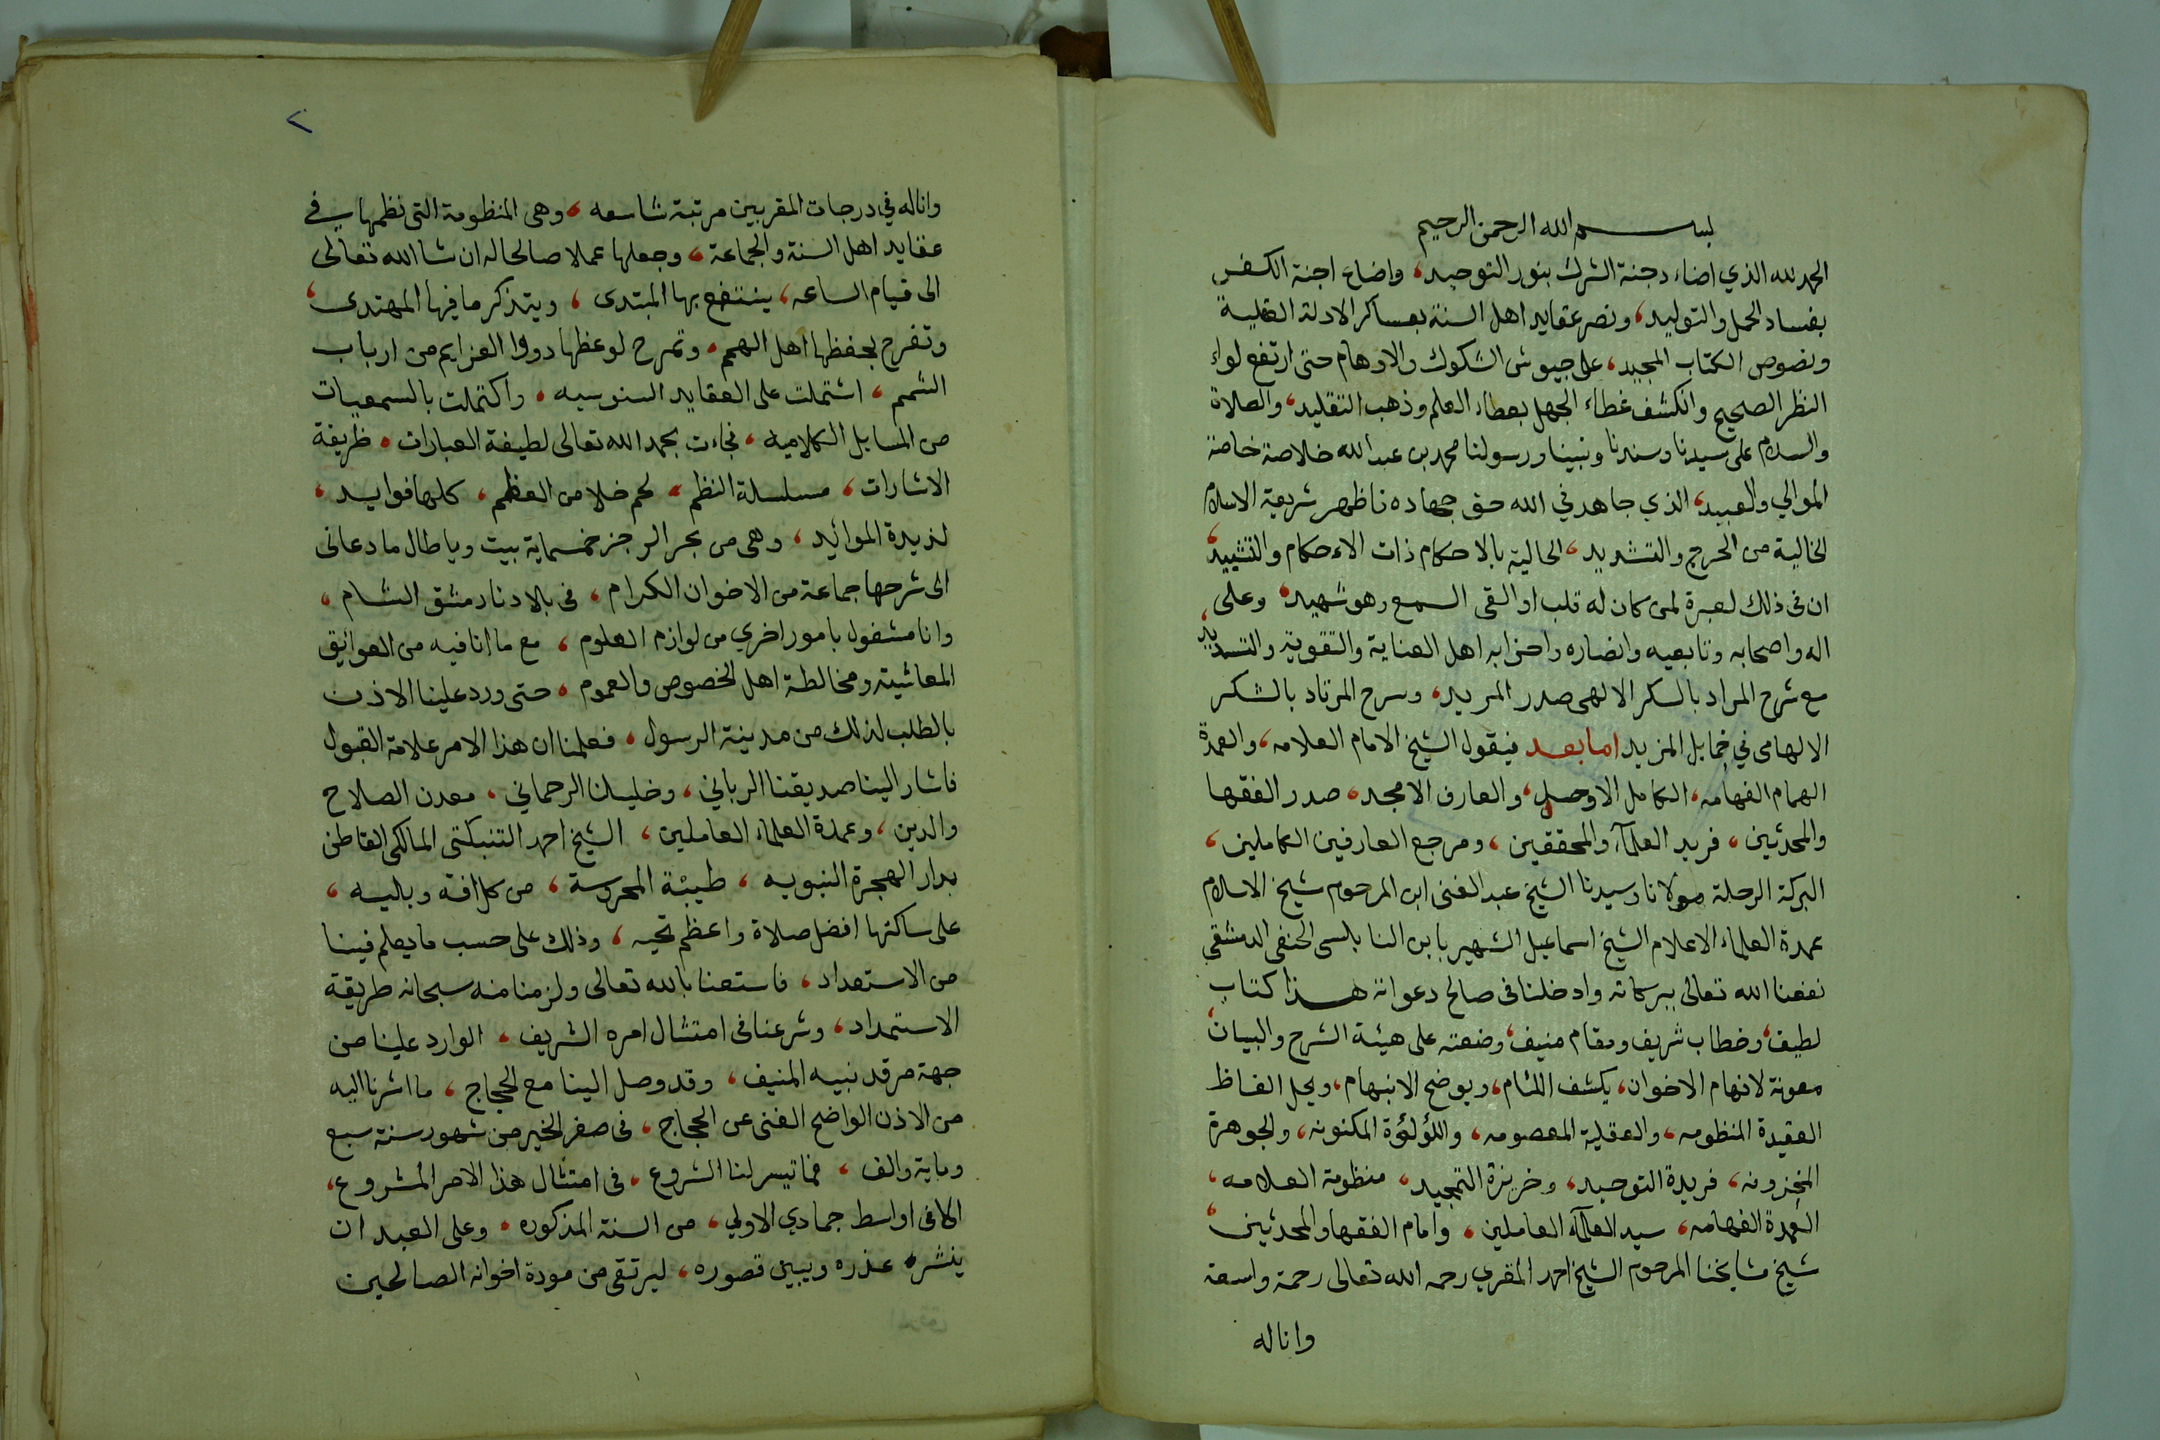 بسم الله الرحمن الرحيم
الحمد لله الذي اضاء دجنة الشرك بنور التوحيد، واضاع اجنة الكفر
بفساد الحمل والتوليد، ونصر عقايد اهل السنة بعساكر الادلة العقلية
ونصوص الكتاب المجيد، على جيوش الشكوك والاوهام حتى ارتفع لواء
النظر الصحيح وانكشف غطاء الجهل بعطاء العلم وذهب التقليد، والصلاة
والسلام على سيدنا وسندنا ونبينا ورسولنا محمد بن عبد الله خلاصة خاصة
الموالي والعبيد، الذي جاهد في الله حق جهاده فاظهر شريعة الاسلام
الخالية من الحرج والتشديد، الحالية بالاحكام ذات الاحكام والتشييد،
ان في ذلك لعبرة لمن كان له قلب او القى السمع وهو شهيد، وعلى
اله واصحابه وتابعيه وانصاره واحزابه اهل العناية والتقوية والتسديد
مع شرح المراد بالسكر الالهى صدر المريد، وسرح المرتاد بالشكر
الالهامى في خمايل المزيد اما بعد فيقول الشيخ الامام العلامه، والعمدة
الهمام الفهامه، الكامل الاوحد، والعارف الامجد، صدر الفقها
والمحدثين، فريد العلمآء والمحققين، ومرجع العارفين الكاملين،
البركة الرحلة مولانا وسيدنا الشيخ عبد الغنى ابن المرحوم شيخ الاسلام
عمدة العلماء الاعلام الشيخ اسماعيل الشهير بابن النابلسى الحنفى الدمشقي
نفعنا الله تعالى ببركاته وادخلنا فى صالح دعواته هذا كتاب
لطيف، وخطاب شريف ومقام منيف، وضعته على هيئة الشرح والبيان،
معونة لافهام الاخوان، يكشف اللثام، ويوضح الانبهام، ويحل الفاظ
العقيدة المنظومه، والعقلية المعصومه، واللؤلئوة المكنونه، والجوهرة
المخزونه، فريدة التوحيد، وخريزة التمجيد، منظومة العلامه،
العمدة الفهامه، سيد العلمآء العاملين، وامام الفقها والمحدثين،
شيخ مشايخنا المرحوم الشيخ احمد المقري رحمه الله تعالى رحمة واسعة
واناله
٢
واناله في درجات المقربين مرتبة شاسعه، وهى المنظومة التى نظمها في
عقايد اهل السنة والجماعة، وجعلها عملا صالحا له ان شا الله تعالى
الى قيام الساعه، ينتفع بها المبتدى، ويتذكر ما فيها المهتدى،
وتفرح بحفظها اهل الهمم، وتمرح لوعظها ذووا العزايم من ارباب
الشمم، اشتملت على العقايد السنوسيه، واكتملت بالسمعيات
من المسايل الكلاميه، فجاءت بحمد الله تعالى لطيفة العبارات، ظريفة
الاشارات، مسلسلة النظم، لحم خلا من العظم، كلها فوايد،
لذيذة الموائيد، وهى من بحر الرجز خمسماية بيت ويا طال ما دعانى
الى شرحها جماعة من الاخوان الكرام، فى بلادنا دمشق الشام،
وانا مشغول بامور اخري من لوازم العلوم، مع ما انا فيه من العوائيق
المعاشية ومخالطة اهل الخصوص والعموم، حتى ورد علينا الاذن
بالطلب لذلك من مدينة الرسول، فعلمنا ان هذا الامر علامة القبول
فاشار الينا صديقنا الرباني، وخليلنا الرحماني، معدن الصلاح
والدين، وعمدة العلماء العاملين، الشيخ احمد التنبكتى المالكى القاطن
بدار الهجرة النبويه، طيبة المحروسة، من كل افة وبليه،
على ساكنها افضل صلاة واعظم تحيه، وذلك على حسب ما يعلم فينا
من الاستعداد، فاستعنا بالله تعالى ولزمنا منه سبحانه طريقة
الاستمداد، وشرعنا فى امتثال امره الشريف، الوارد علينا من
جهة مرقد نبيه المنيف، وقد وصل الينا مع الحجاج، ما اشرنا اليه
من الاذن الواضح الغنى عن الحجاج، فى صفر الخير من شهور سنة سبع
وماية والف، فما تيسر لنا الشروع، فى امتثال هذا الامر المشروع،
الا فى اواسط جمادي الاولي، من السنة المذكوره، وعلى العبد ان
ينشر عذره ويبين قصوره، ليرتقى من مودة اخوانه الصالحين